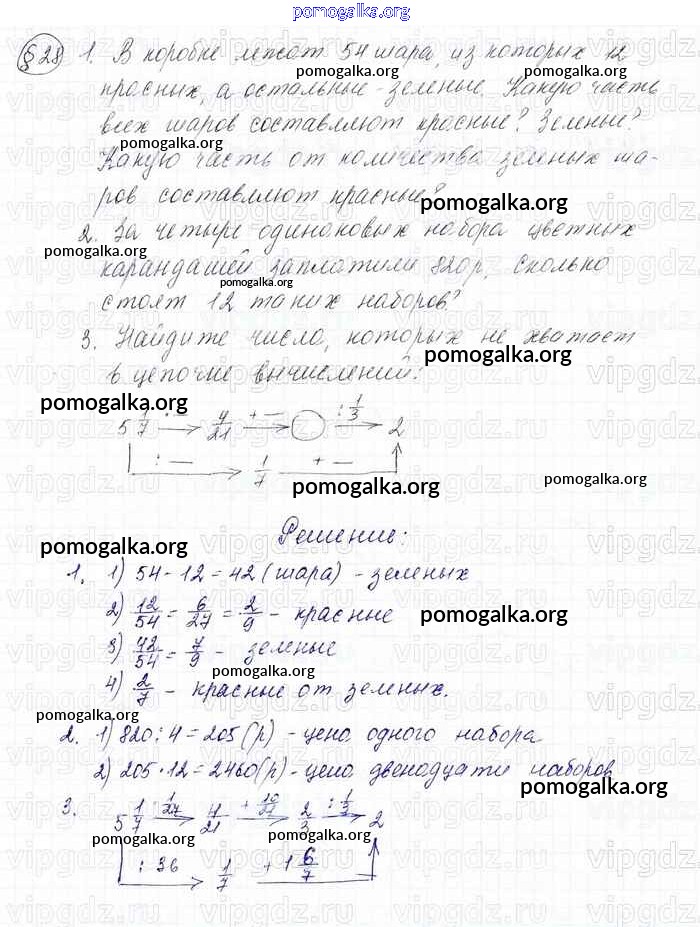 pomogalka.org
§28 1. В коробке лежат 54 шара, из которых 12
красных, а остальные - зеленые. Какую часть
всех шаров составляют красные? Зеленые?
Какую часть от количества зеленых ша-
ров составляют красные?
2. За четыре одинаковых набора цветных
карандашей заплатили 820 р, сколько
стоят 12 таких наборов?
3. Найдите числа, которых не хватает
в цепочке вычислений:
5 1/7 : — → 4/21 + — → ○ : 1/3 → 2
: — → 1/7 + —
Решение:
1. 1) 54 - 12 = 42 (шара) - зеленых
2) 12/54 = 6/27 = 2/9 - красные
3) 42/54 = 7/9 - зеленые
4) 2/7 - красные от зеленых.
2. 1) 820 : 4 = 205 (р) - цена одного набора
2) 205 · 12 = 2460 (р) - цена двенадцати наборов
3. 5 1/7 : 1/27 → 4/21 + 10/21 → 2/3 : 1/3 → 2
: 36 → 1/7 + 1 6/7